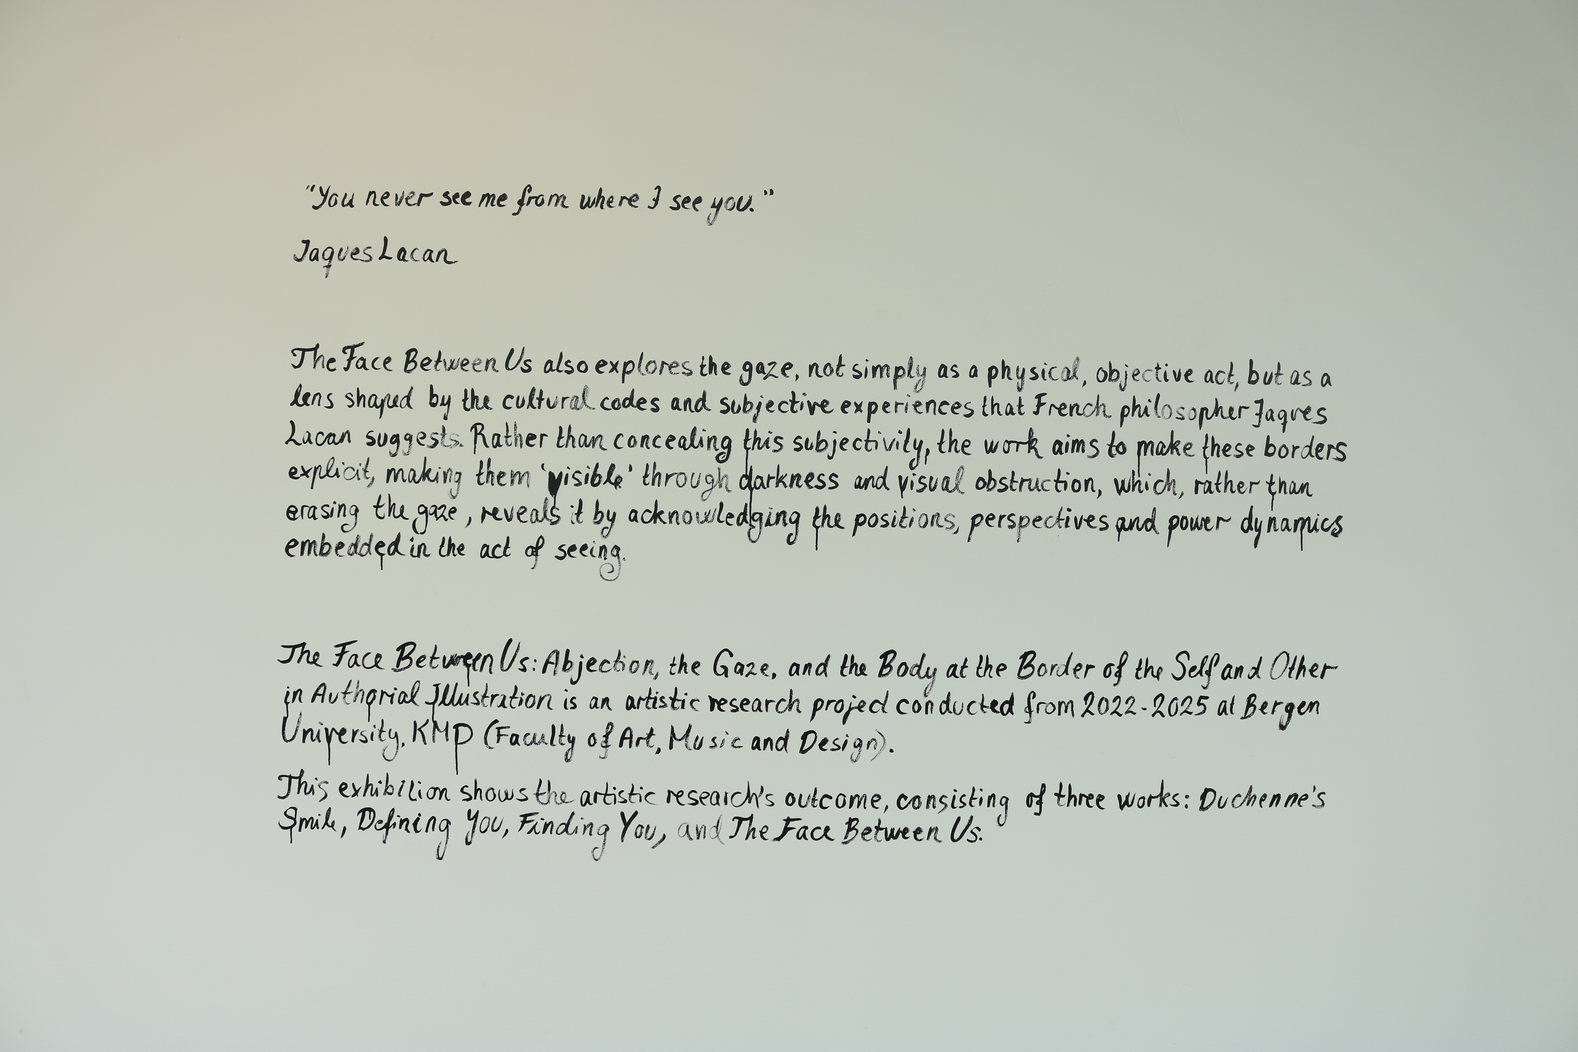 "You never see me from where I see you."
Jaques Lacan
The Face Between Us also explores the gaze, not simply as a physical, objective act, but as a
lens shaped by the cultural codes and subjective experiences that French philosopher Jaques
Lacan suggests. Rather than concealing this subjectivity, the work aims to make these borders
explicit, making them 'visible' through darkness and visual obstruction, which, rather than
erasing the gaze, reveals it by acknowledging the positions, perspectives and power dynamics
embedded in the act of seeing.
The Face Between Us: Abjection, the Gaze, and the Body at the Border of the Self and Other
in Authorial Illustration is an artistic research project conducted from 2022-2025 at Bergen
University, KMD (Faculty of Art, Music and Design).
This exhibition shows the artistic research's outcome, consisting of three works: Duchenne's
Smile, Defining You, Finding You, and The Face Between Us.